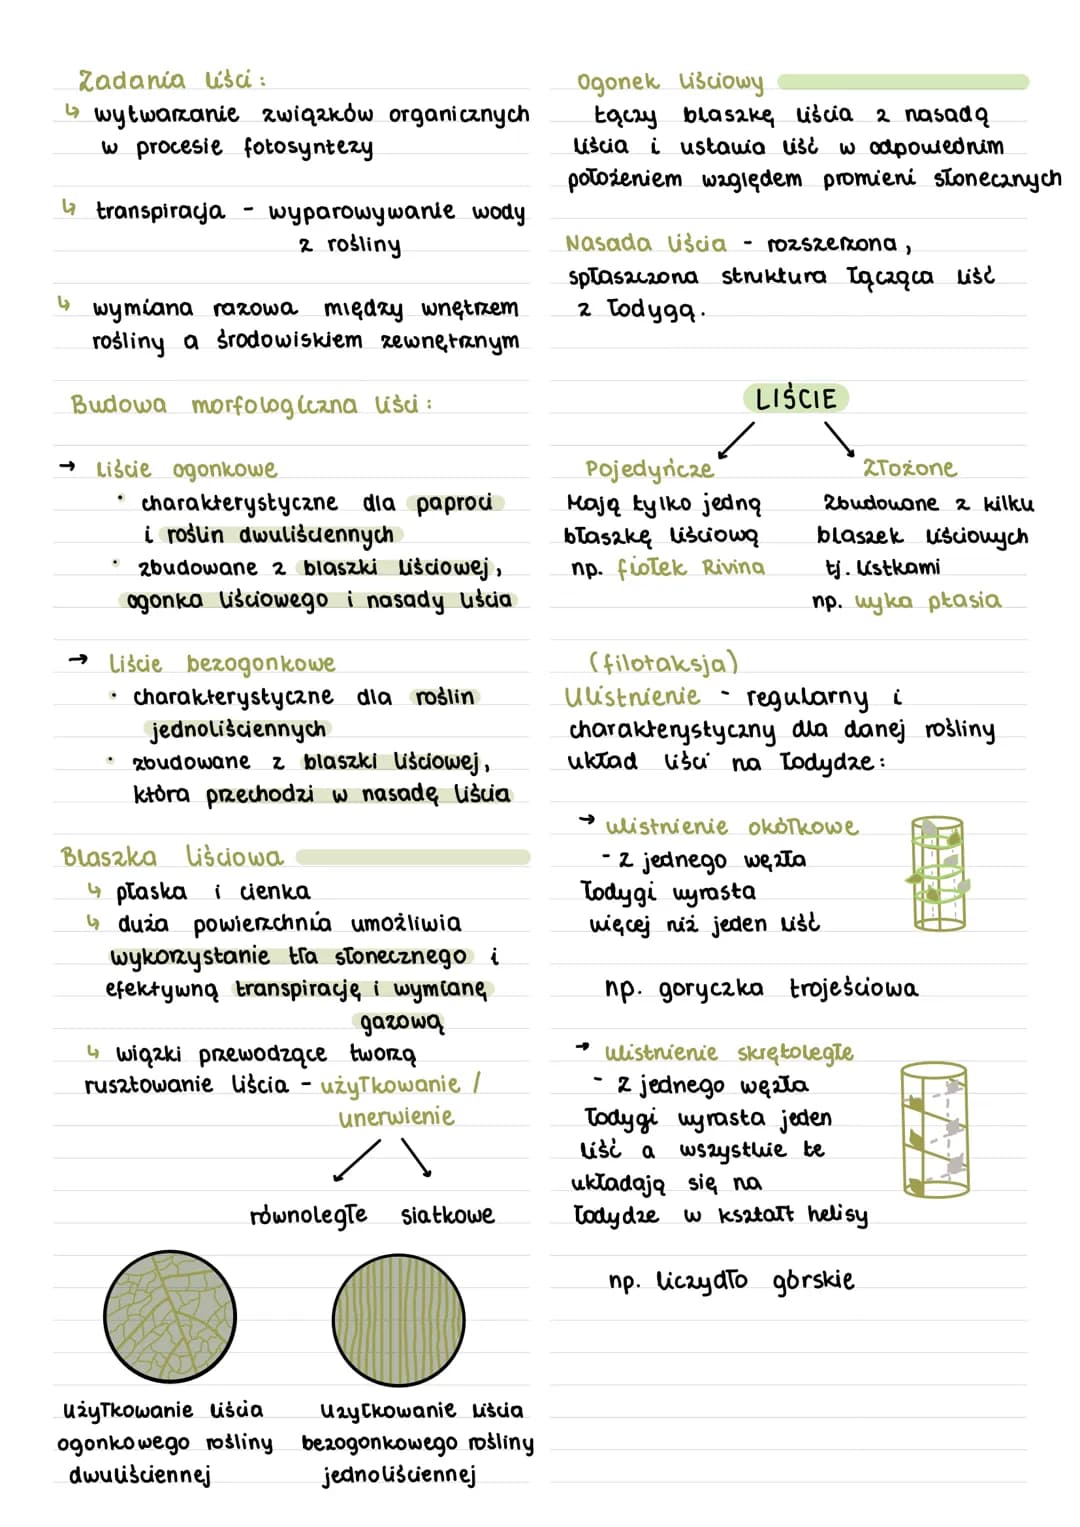 Zadania liści:
↳ wytwarzanie związków organicznych
w procesie fotosyntezy
↳ transpiracja - wyparowywanie wody
z rośliny
↳ wymiana razowa między wnętrzem
rośliny a środowiskiem zewnętrznym
Budowa morfologiczna liści:
→ liście ogonkowe
• charakterystyczne dla paproci
i roślin dwuliściennych
• zbudowane z blaszki liściowej,
ogonka liściowego i nasady liścia
→ liście bezogonkowe
• charakterystyczne dla roślin
jednoliściennych
• zbudowane z blaszki liściowej,
która przechodzi w nasadę liścia
Blaszka liściowa
↳ płaska i cienka
↳ duża powierzchnia umożliwia
wykorzystanie tła słonecznego i
efektywną transpirację i wymianę
gazową
↳ wiązki przewodzące tworzą
rusztowanie liścia - użyłkowanie /
unerwienie
równoległe siatkowe
użyłkowanie liścia
ogonkowego rośliny
dwuliściennej
użyłkowanie liścia
bezogonkowego rośliny
jednoliściennej
Ogonek liściowy
łączy blaszkę liścia z nasadą
liścia i ustawia liść w odpowiednim
położeniem względem promieni słonecznych
Nasada liścia - rozszerzona,
spłaszczona struktura łącząca liść
z łodygą.
LIŚCIE
Pojedyńcze
Mają tylko jedną
błaszkę liściową
np. fiołek Rivina
Złożone
Zbudowane z kilku
blaszek liściowych
tj. listkami
np. wyka ptasia
(filotaksja)
Ulistnienie - regularny i
charakterystyczny dla danej rośliny
układ liści na łodydze:
→ ulistnienie okółkowe
- z jednego węzła
łodygi wyrasta
więcej niż jeden liść
np. goryczka trojeściowa
→ ulistnienie skrętoległe
- z jednego węzła
łodygi wyrasta jeden
liść a wszystkie te
układają się na
łodydze w kształt helisy
np. liczydło górskie